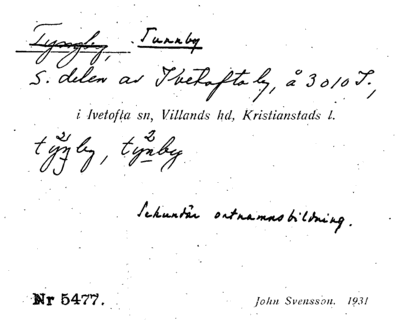 Tyngby, Tunnby
S. delen av Ivetofta by, å 3010 I.,
i Ivetofta sn, Villands hd, Kristianstads l.
Sekundär ortnamnsbildning.
Nr 5477.
John Svensson. 1931